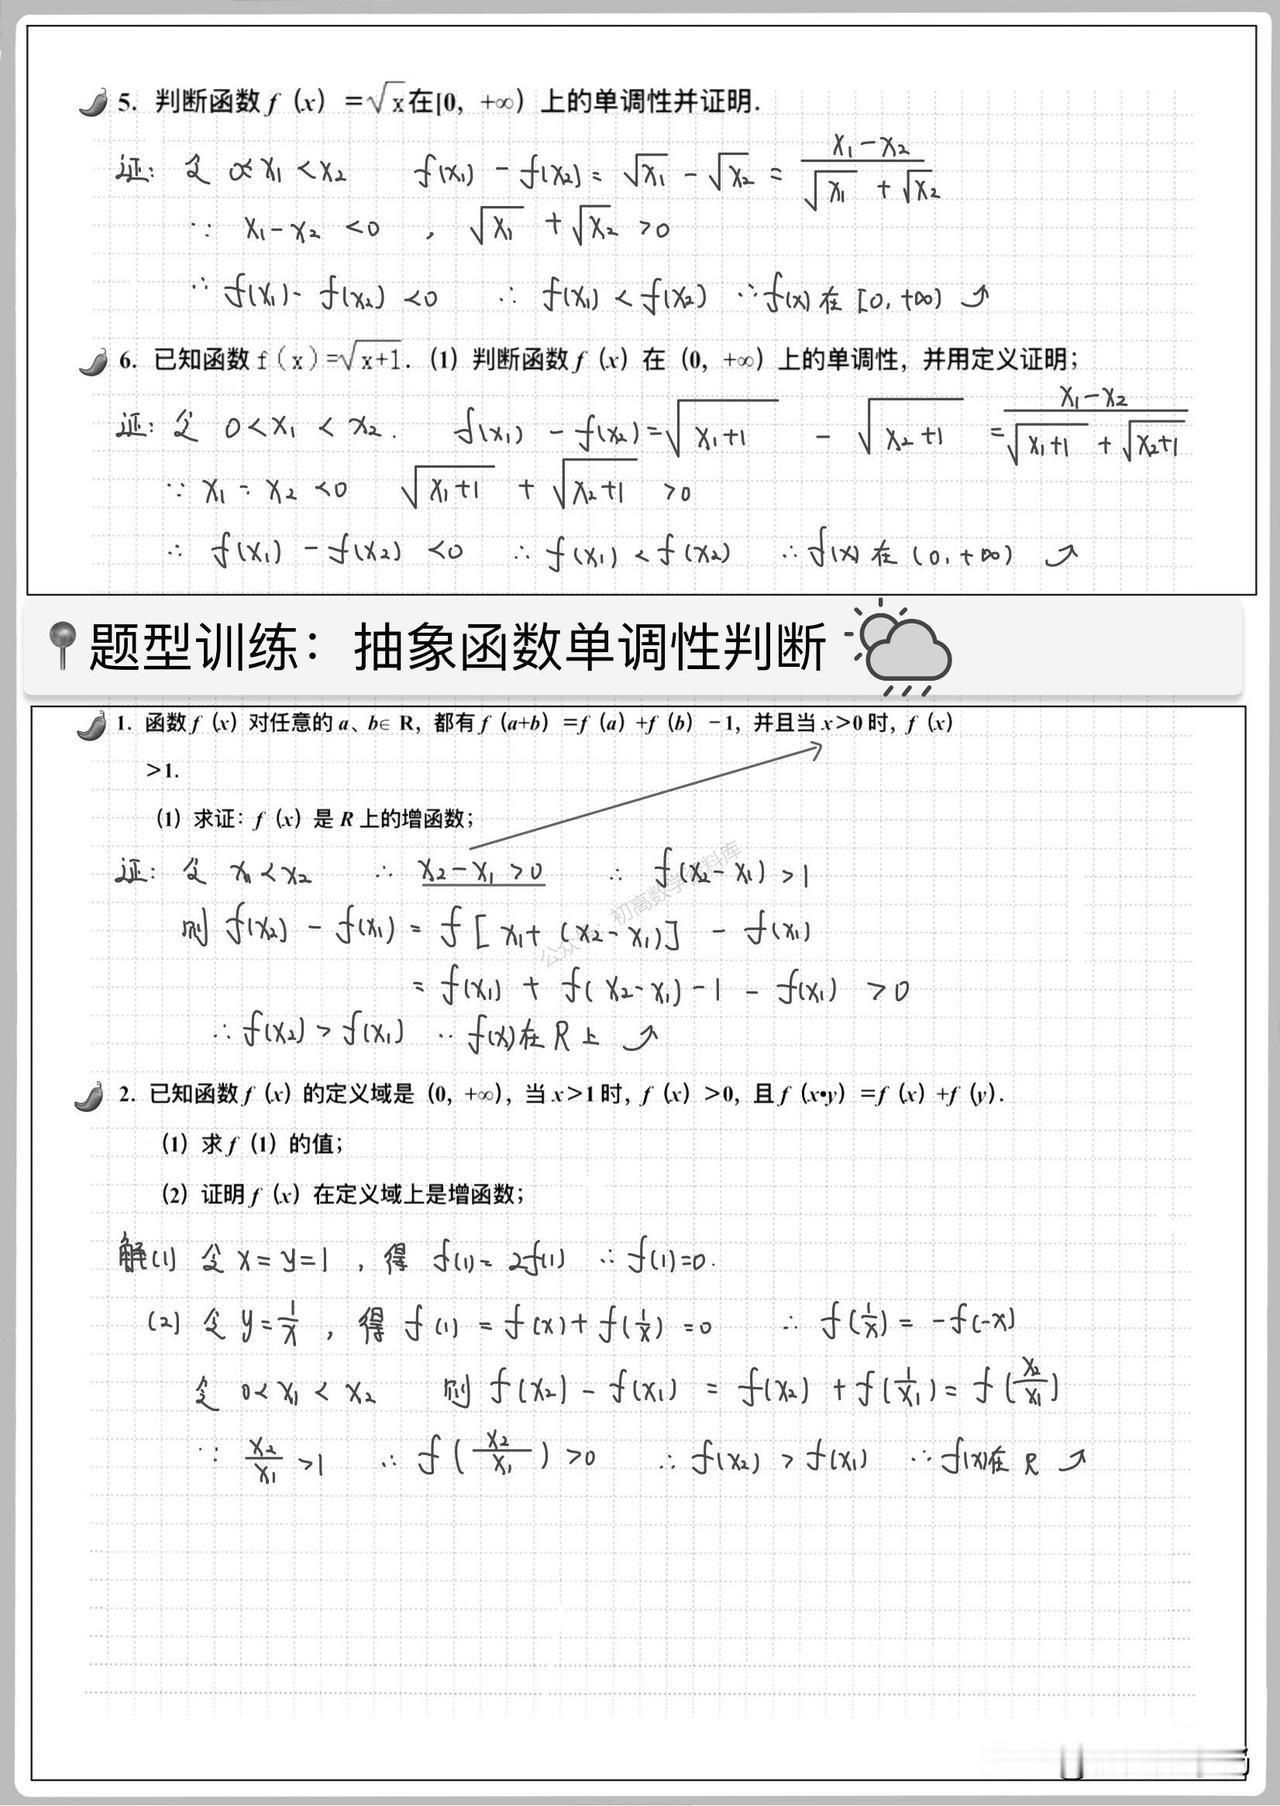 5. 判断函数 f（x）=√x在[0，+∞）上的单调性并证明.
证: 令 0≤x₁<x₂ f(x₁)-f(x₂)=√x₁-√x₂=(x₁-x₂)/(√x₁+√x₂)
∵ x₁-x₂<0 , √x₁+√x₂>0
∴ f(x₁)-f(x₂)<0 ∴ f(x₁)<f(x₂) ∴f(x)在[0,+∞)↗
6. 已知函数 f(x)=√(x+1).（1）判断函数 f（x）在（0，+∞）上的单调性，并用定义证明；
证: 令 0<x₁<x₂. f(x₁)-f(x₂)=√(x₁+1)-√(x₂+1)=(x₁-x₂)/(√(x₁+1)+√(x₂+1))
∵ x₁-x₂<0 √(x₁+1)+√(x₂+1)>0
∴ f(x₁)-f(x₂)<0 ∴ f(x₁)<f(x₂) ∴f(x)在(0,+∞)↗
题型训练：抽象函数单调性判断
1. 函数 f（x）对任意的 a、b∈R，都有 f（a+b）=f（a）+f（b）-1，并且当 x>0 时，f（x）
>1.
（1）求证：f（x）是 R 上的增函数；
证: 令 x₁<x₂ ∴ x₂-x₁>0 ∴ f(x₂-x₁)>1
则 f(x₂)-f(x₁)=f[x₁+(x₂-x₁)]-f(x₁)
=f(x₁)+f(x₂-x₁)-1-f(x₁)>0
∴f(x₂)>f(x₁) ∴f(x)在R上↗
2. 已知函数 f（x）的定义域是（0，+∞），当 x>1 时，f（x）>0，且 f（x•y）=f（x）+f（y）.
（1）求 f（1）的值；
（2）证明 f（x）在定义域上是增函数；
解(1) 令 x=y=1 , 得 f(1)=2f(1) ∴f(1)=0.
(2) 令 y=1/x , 得 f(1)=f(x)+f(1/x)=0 ∴ f(1/x)=-f(-x)
令 0<x₁<x₂ 则 f(x₂)-f(x₁)=f(x₂)+f(1/x₁)=f(x₂/x₁)
∵ x₂/x₁>1 ∴ f(x₂/x₁)>0 ∴ f(x₂)>f(x₁) ∴f(x)在R↗